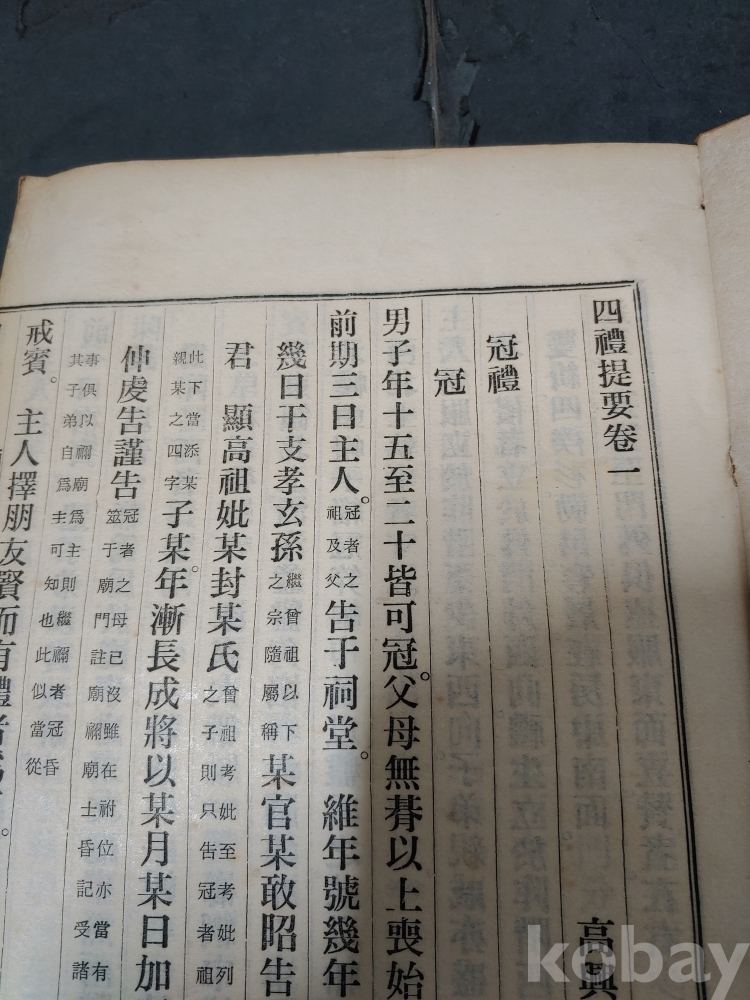 四禮提要卷一
高興
冠禮
冠
男子年十五至二十皆可冠。父母無朞以上喪始
前期三日主人。冠者之祖及父告于祠堂。維年號幾年
幾日干支孝玄孫繼曾祖以下之宗隨屬稱某官某敢昭告
君 顯高祖妣某封某氏曾祖考妣至考妣列之子則只告冠者祖
此下當添某親某之四字子某年。漸長成將以某月某日加
仲虔告謹告冠者之母已沒雖在祔位亦當有筮于廟門註廟禰廟士昏記受諸
事俱以禰廟爲主則繼禰者冠昏其子弟自爲主可知也此似當從
戒賓。主人擇朋友賢而有禮者
kobay